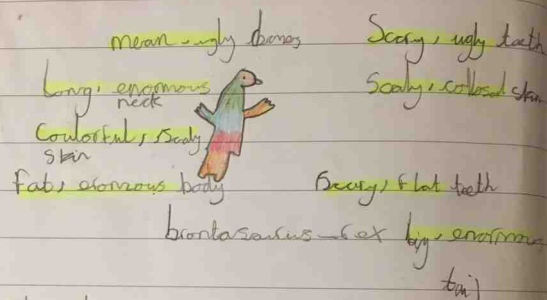 mean, ugly bones
Scary, ugly teeth
Long, enormous neck
Scaly, collosal skin
Coulorful, scaly skin
Fat, enomous body
Scary, flat teeth
brontasaurus-rex
big, enormous tail